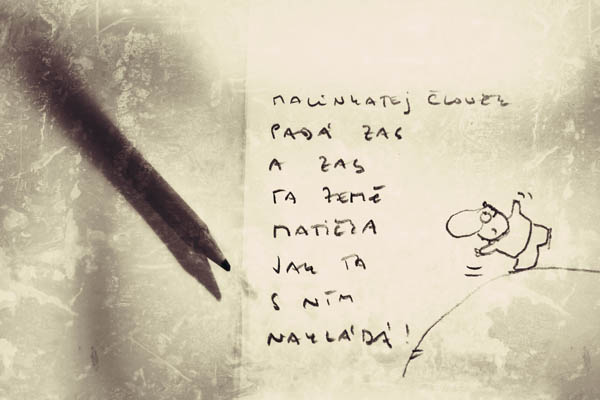 MALINKATEJ ČLOVĚK
PADÁ ZAS
A ZAS
TA ZEMĚ
MATIČKA
JAK TA
S NÍM
NAKLÁDÁ!